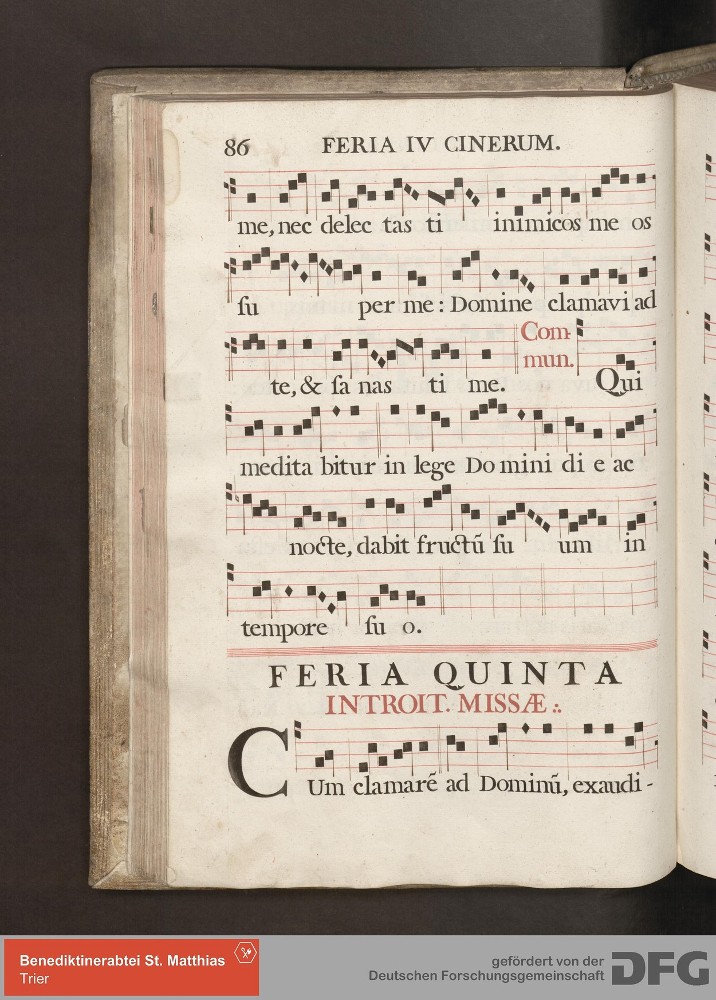 86 FERIA IV CINERUM.
me, nec delec tas ti inimicos me os
su per me: Domine clamavi ad
Com-
mun.
te, & sa nas ti me. Qui
medita bitur in lege Do mini di e ac
nocte, dabit fructū su um in
tempore su o.
FERIA QUINTA
INTROIT. MISSÆ ∴
CUm clamarē ad Dominū, exaudi-
Benediktinerabtei St. Matthias
Trier
gefördert von der
Deutschen Forschungsgemeinschaft
DFG